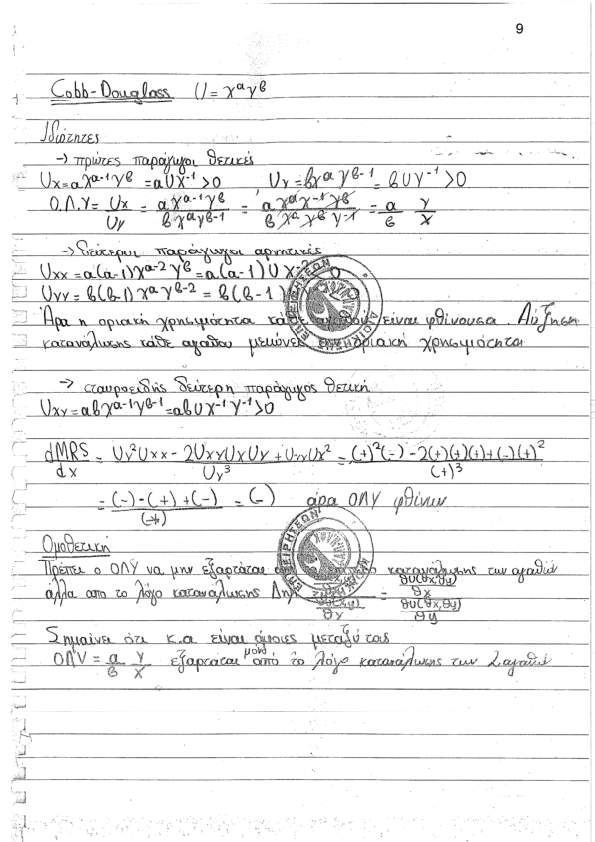 9
Cobb-Douglass U = χᵅγᵝ
Ιδιότητες
→ πρώτες παράγωγοι θετικές
Ux = αχᵅ⁻¹γᵝ = αUX⁻¹ > 0 Uγ = βχᵅγᵝ⁻¹ = βUY⁻¹ > 0
Ο.Λ.Υ = Ux/Uγ = αχᵅ⁻¹γᵝ/βχᵅγᵝ⁻¹ = αχᵅχ⁻¹γᵝ/βχᵅγᵝγ⁻¹ = α/β Y/X
→ δεύτεροι παράγωγοι αρνητικές
Uxx = α(α-1)χᵅ⁻²γᵝ = α(α-1)UX⁻² 0
Uγγ = β(β-1)χᵅγᵝ⁻² = β(β-1)
Άρα η οριακή χρησιμότητα κάθε είναι φθίνουσα. Αύξηση
κατανάλωσης κάθε αγαθού μειώνει οριακή χρησιμότητα
→ σταυροειδής δεύτερη παράγωγος θετική
Uxγ = αβχᵅ⁻¹γᵝ⁻¹ = αβUX⁻¹Y⁻¹ > 0
dMRS/dx = Uγ²Uxx - 2UxγUxUγ + UγγUx²/Uγ³ = (+)²(-) - 2(+)(+)(+) + (-)(+)²/(+)³
= (-) - (+) + (-)/(+) = (-) άρα ΟΛΥ φθίνων
Ομοθετική
Πρέπει ο ΟΛΥ να μην εξαρτάται κατανάλωσης των αγαθών
αλλα απο το λόγο κατανάλωσης Δηλ = θU(θx,θy)/θx / θU(θx,θy)/θy
Σημαίνει ότι κ.α είναι όμοιες μεταξύ τους
ΟΛΥ = α/β Y/X εξαρτάται μονο από το λόγο κατανάλωσης των 2 αγαθών